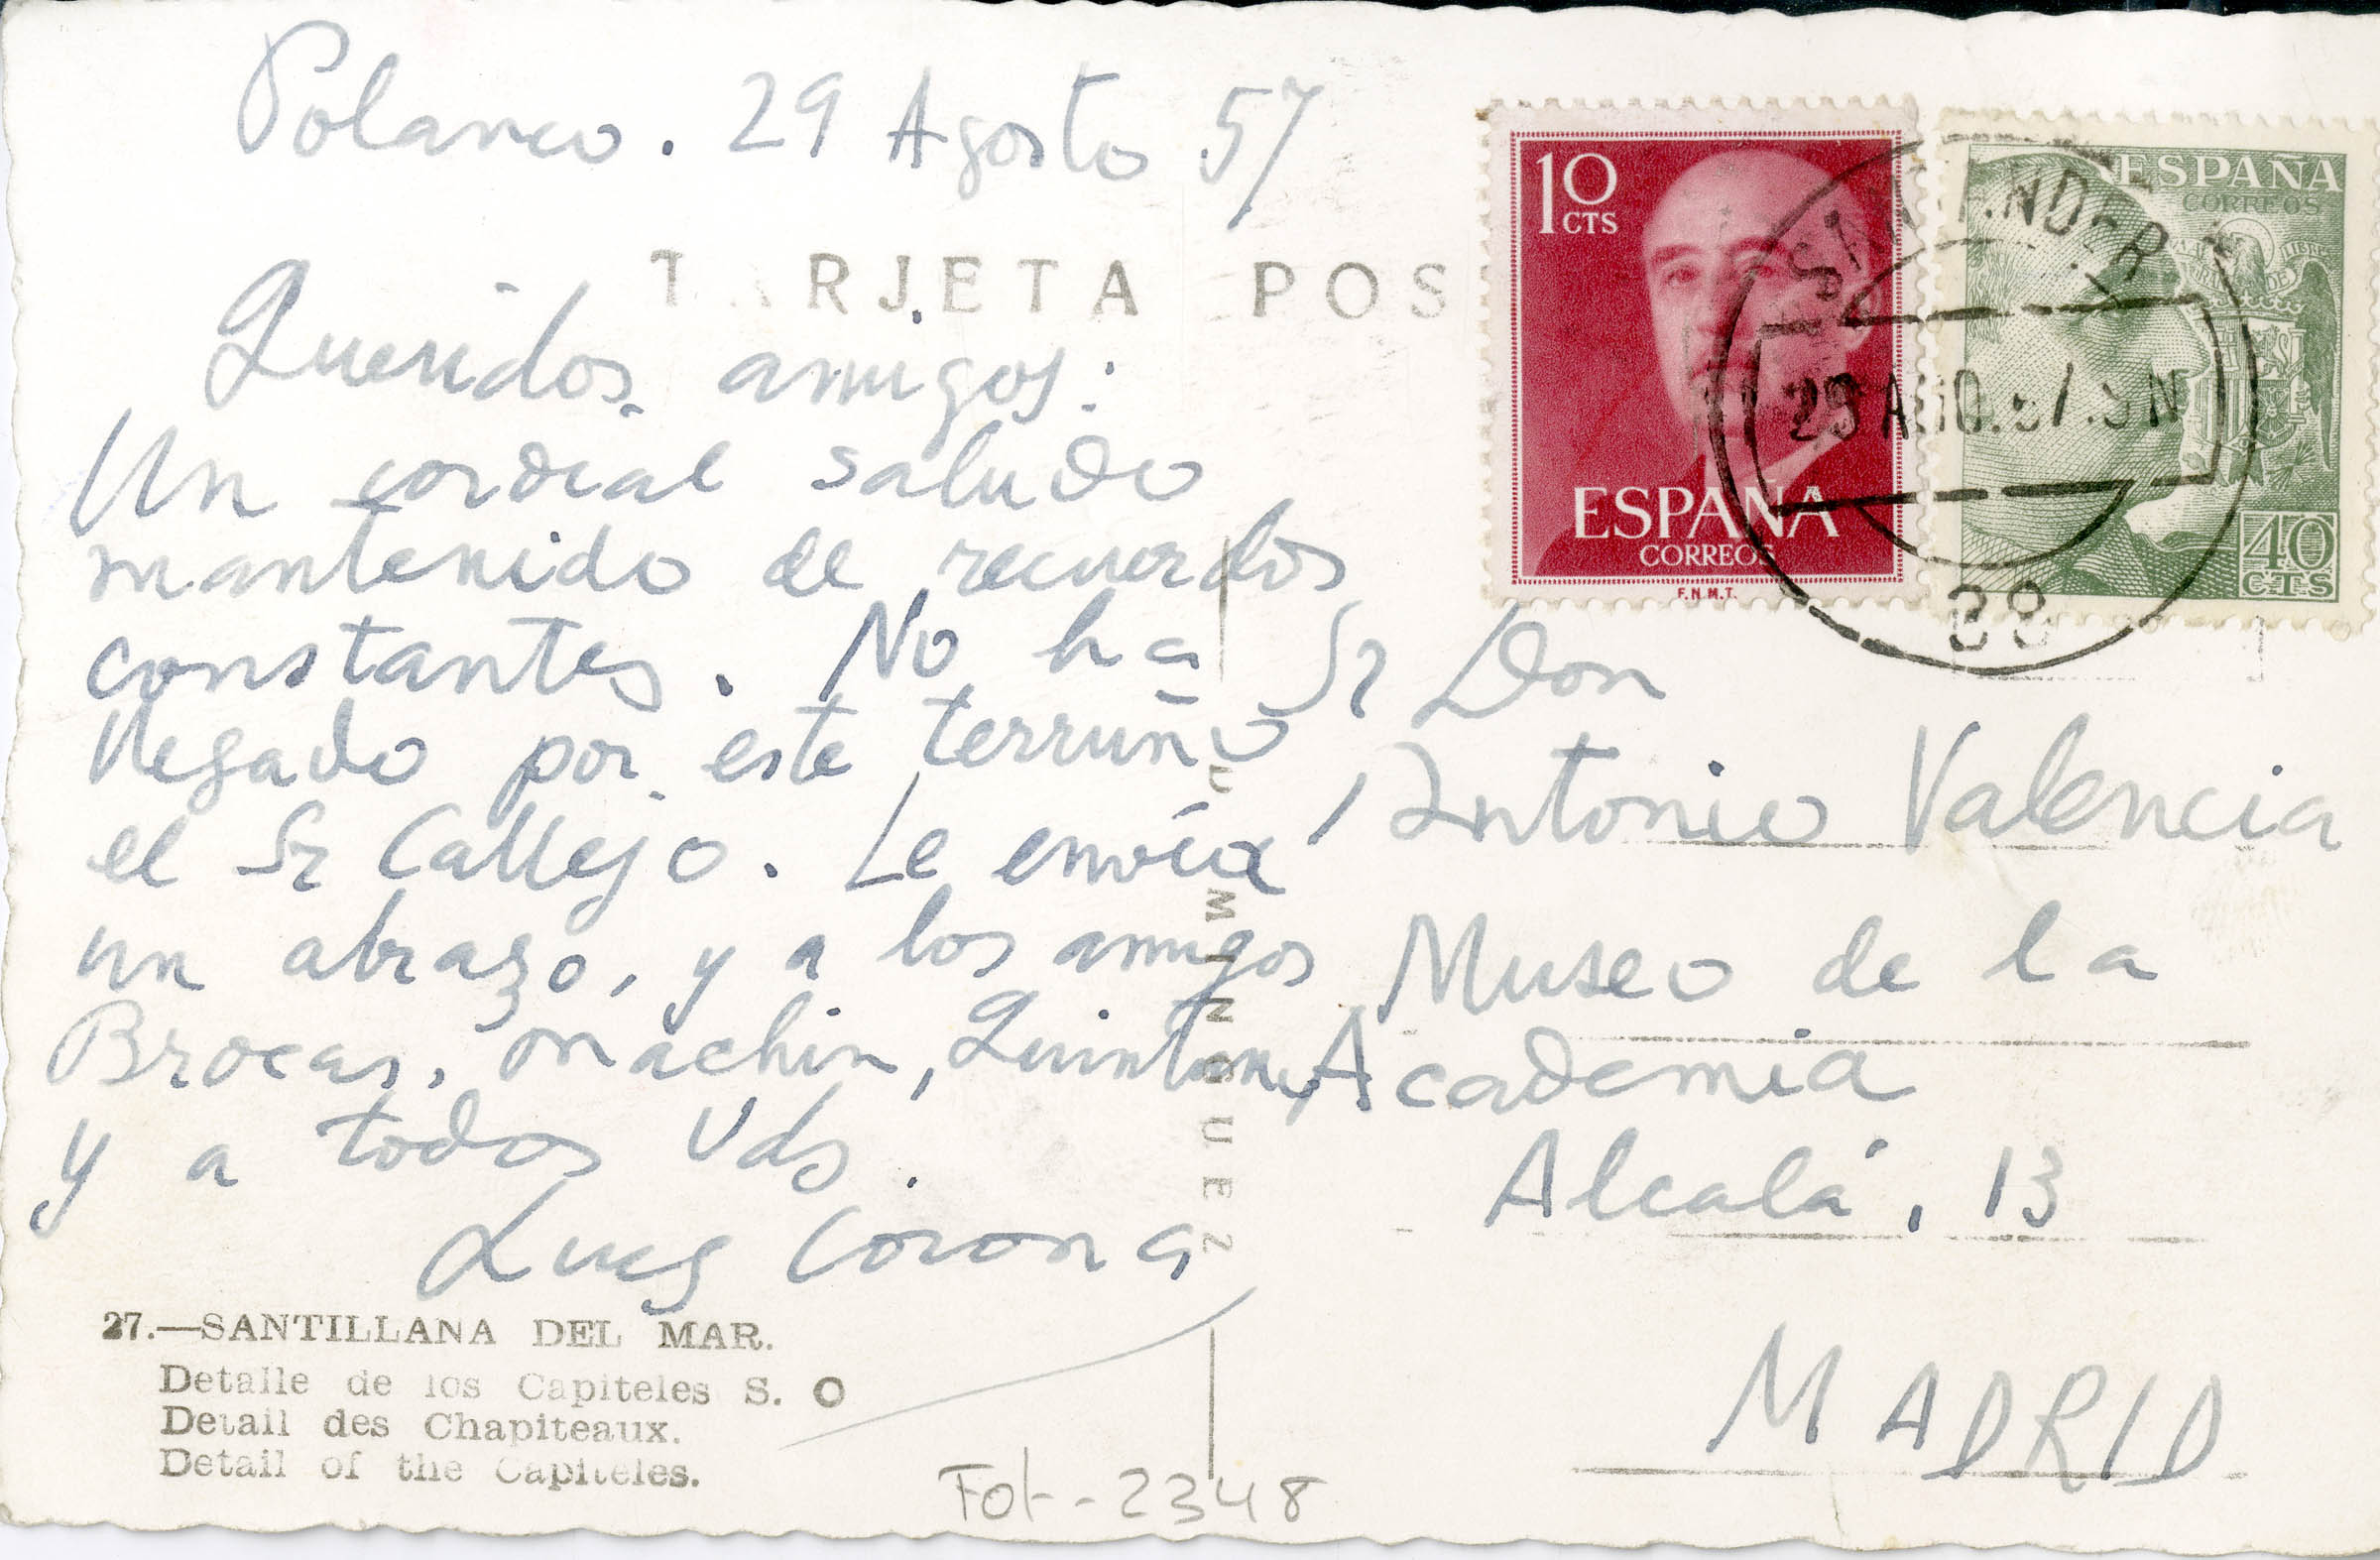 Polanco. 29 Agosto 57
TARJETA POS
Queridos amigos:
Un cordial saludo
mantenido de recuerdos
constantes. No ha
llegado por este terruño
el Sr Callejo. Le envía
un abrazo, y a los amigos
Brocas, Machin, Quintana,
y a todos Vds.
Luis Corona
27.—SANTILLANA DEL MAR.
Detalle de los Capiteles S. O
Detail des Chapiteaux.
Detail of the Capiteles.
Fot-2348
DOMINGUEZ
10
CTS
ESPAÑA
CORREOS
F.N.M.T.
ESPAÑA
CORREOS
40
CTS
SANTANDER
29 AGO.57.9N
Sr Don
Antonio Valencia
Museo de la
Academia
Alcalá, 13
MADRID